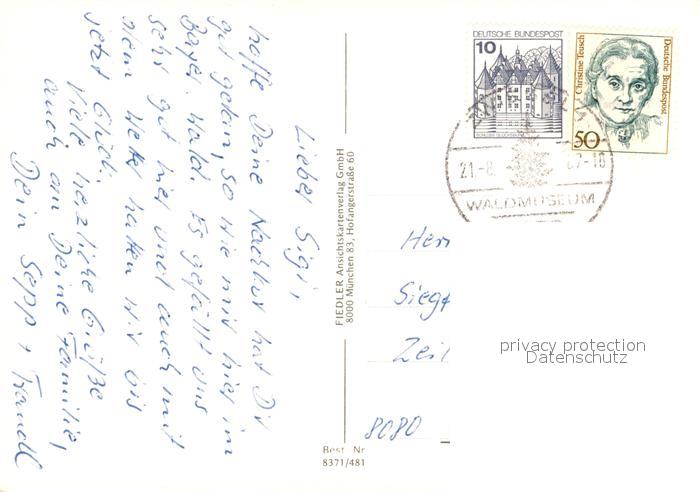 Lieber Sigi,
hoffe Deine Nachkur hat Dir
gut getan, so wie mir hier im
Bayer. Wald. Es gefällt uns
sehr gut hier und auch mit
dem Wetter hatten wir bis
jetzt Glück.
Viele herzliche Grüße
auch an Deine Familie,
Dein Sepp + Traudl
FIEDLER Ansichtskartenverlag GmbH
8000 München 83, Hofangerstraße 60
Best. Nr
8371/481
DEUTSCHE BUNDESPOST
10
SCHLOSS GLÜCKSBURG
Christine Teusch
Deutsche Bundespost
50
21.-8. 87-10
WALDMUSEUM
Herr
Siegf
Zeil
8080
privacy protection
Datenschutz